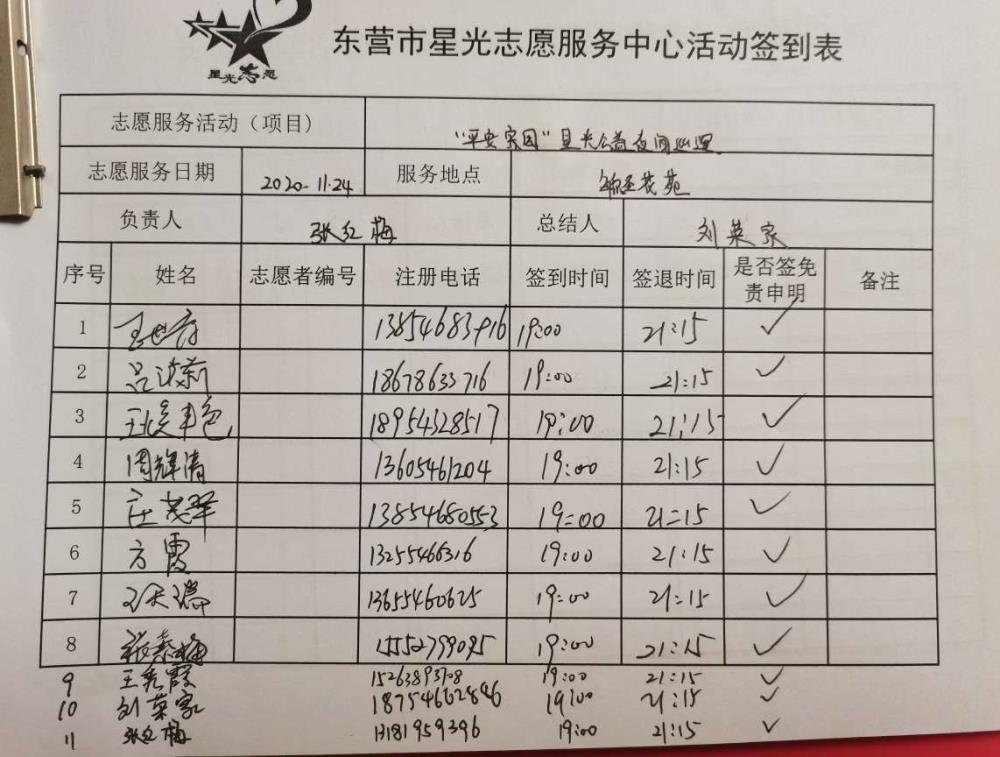 星光志愿
东营市星光志愿服务中心活动签到表
志愿服务活动（项目） "平安家园"星光公益夜间巡逻
志愿服务日期 2020.11.24 服务地点
负责人 张红梅 总结人 刘荣家
序号 姓名 志愿者编号 注册电话 签到时间 签退时间 是否签免责申明 备注
1 19:00 21:15 ✓
2 吕 18678633716 19:00 21:15 ✓
3 18954328517 19:00 21:15 ✓
4 周辉清 13605461204 19:00 21:15 ✓
5 庄茂翠 13854680553 19:00 21:15 ✓
6 方霞 13255466316 19:00 21:15 ✓
7 13655460625 19:00 21:15 ✓
8 张素梅 15552799095 19:00 21:15 ✓
9 王秀霞 19:00 21:15 ✓
10 刘荣家 18754662846 19:00 21:15 ✓
11 张红梅 13181959396 19:00 21:15 ✓